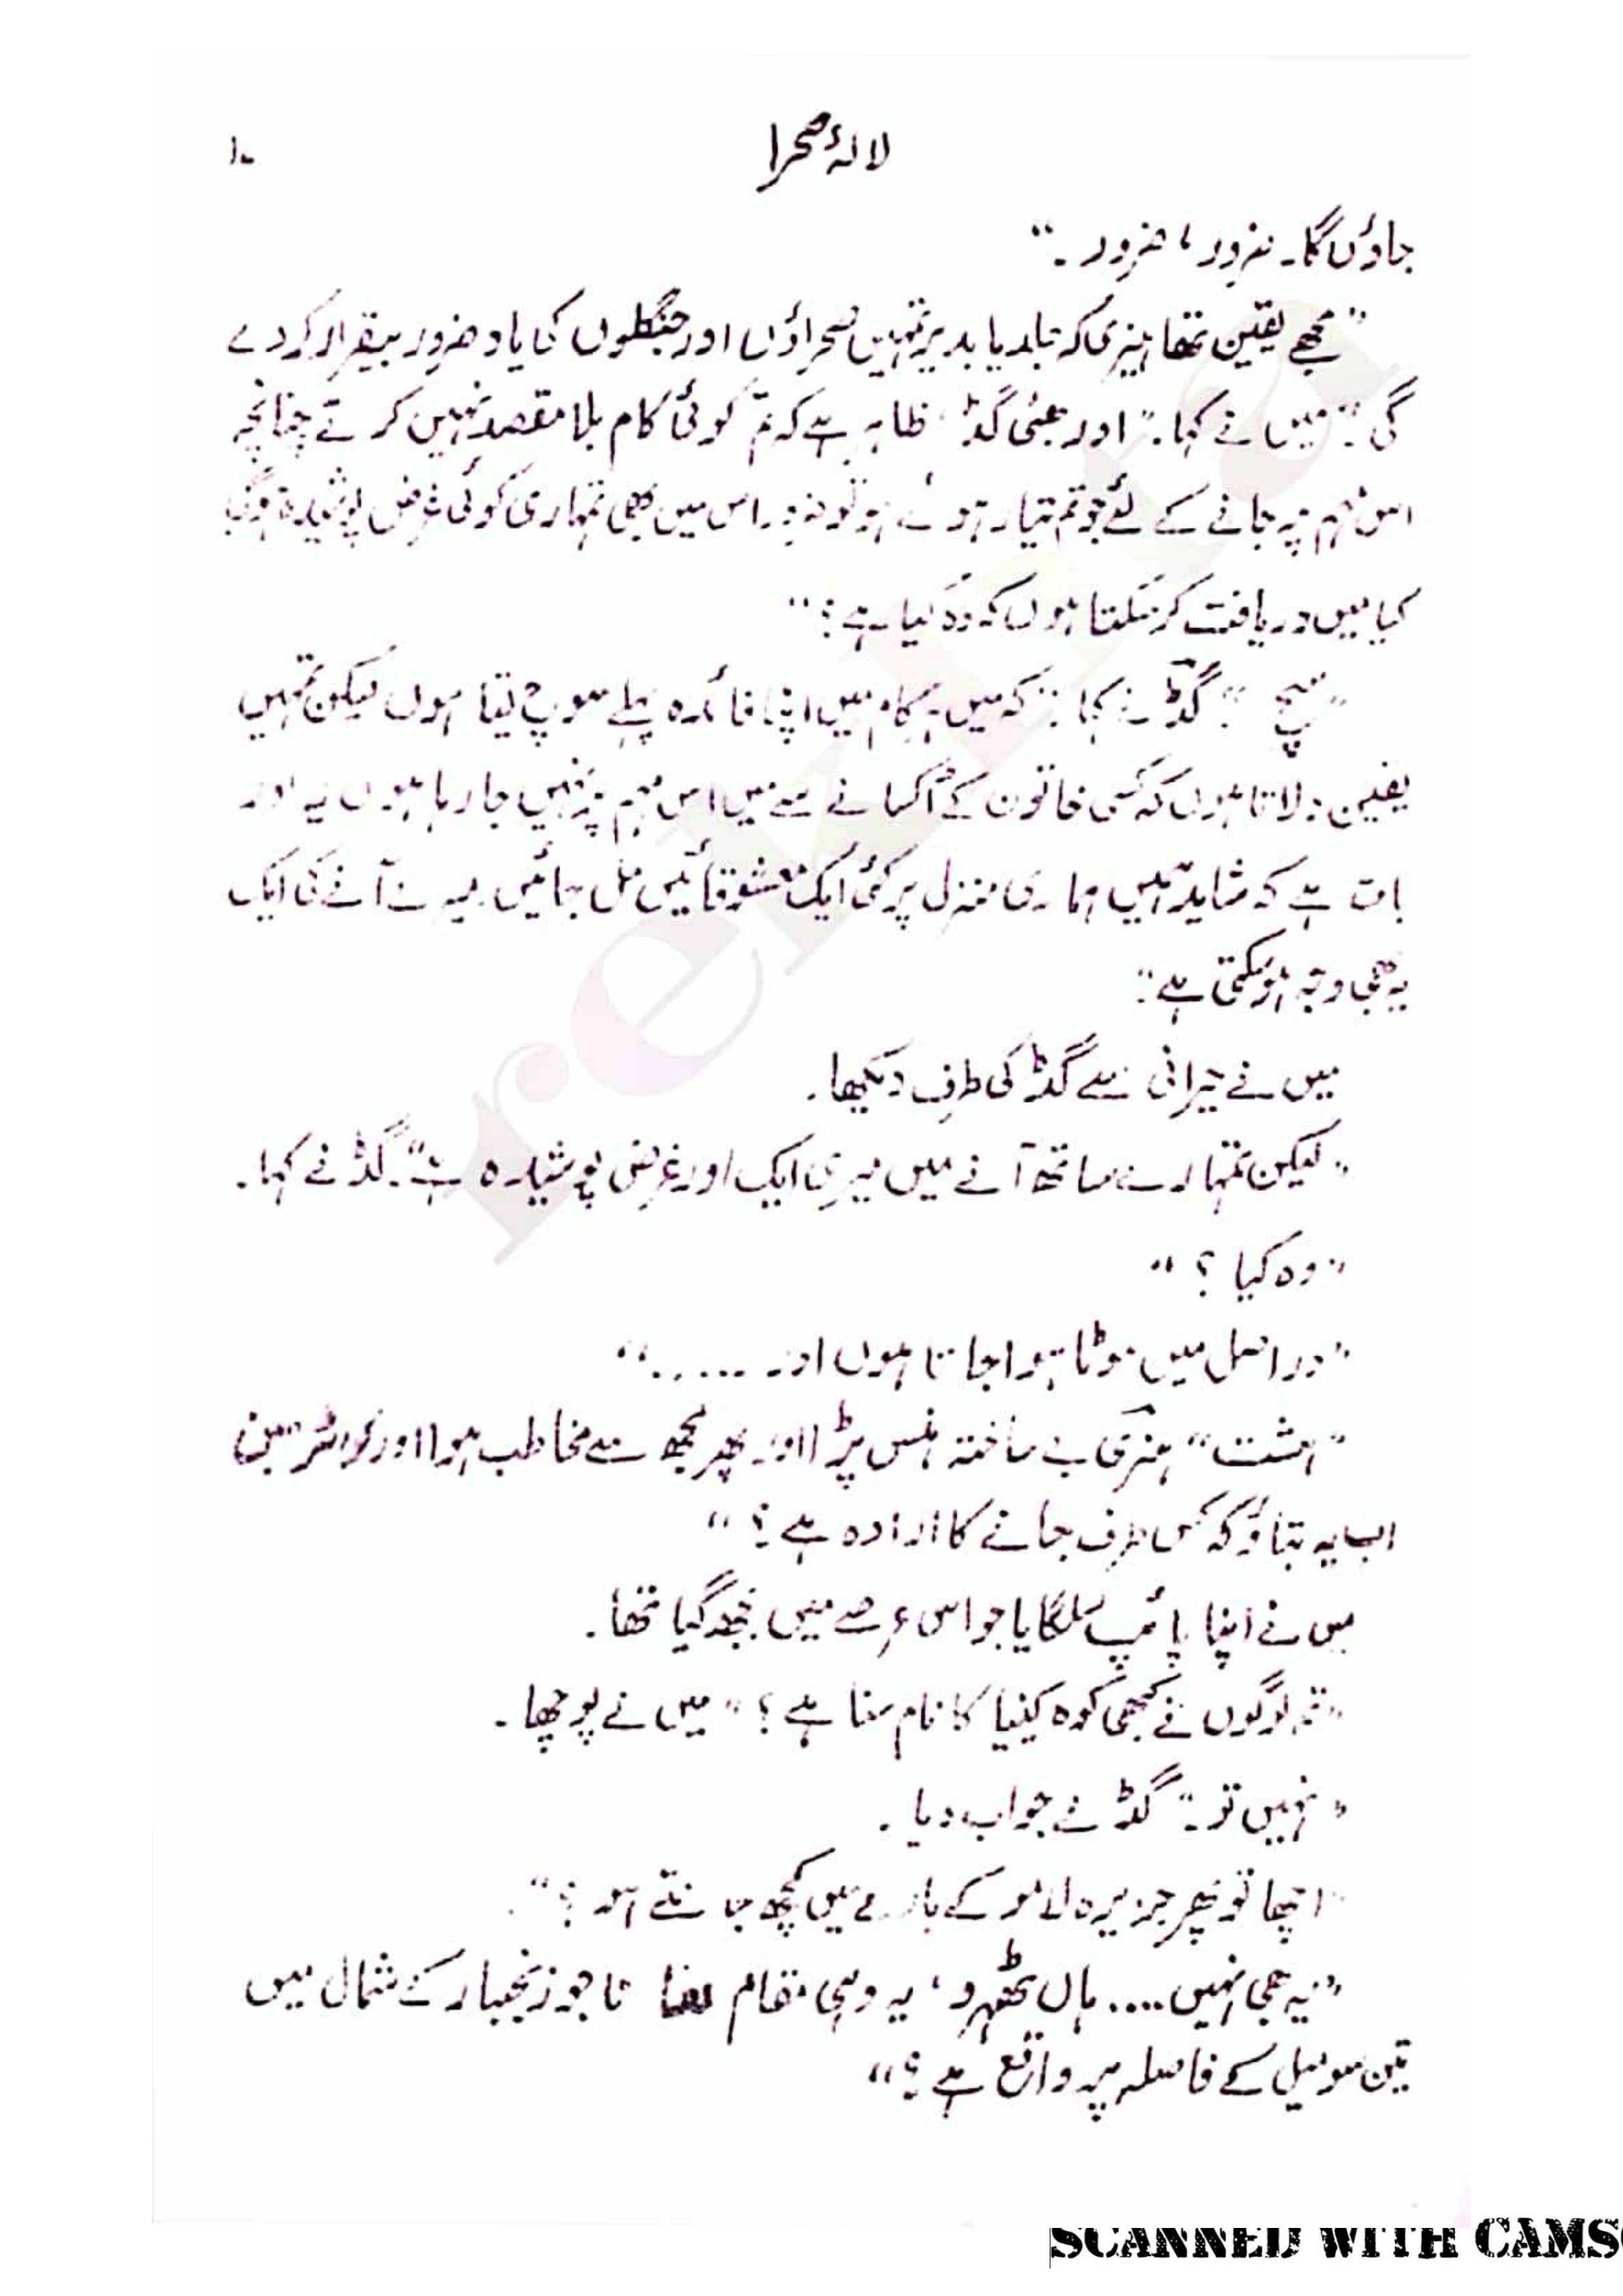 لالۂ صحرا
۱۰
جاؤں گا۔ ضرور، ضرور۔"
"مجھے یقین تھا ہنری کہ جلد یا بدیر تمہیں صحراؤں اور جنگلوں کی یاد ضرور بیقرار کر دے
گی"۔ میں نے کہا۔ "اور بھئی گڈ۔ ظاہر ہے کہ تم کوئی کام بلا مقصد نہیں کرتے چنانچہ
اس مہم پر جانے کے لئے جو تم تیار ہوئے ہو تو ضرور اس میں بھی تمہاری کوئی غرض پوشیدہ ہوگی
کیا میں دریافت کر سکتا ہوں کہ وہ کیا ہے؟"
"سچ ہے" گڈ نے کہا "کہ میں ہر کام میں اپنا فائدہ پہلے سوچ لیتا ہوں لیکن تمہیں
یقین دلاتا ہوں کہ کسی خاتون کے اُکسانے سے میں اس مہم پر نہیں جا رہا ہوں یہ اور
بات ہے کہ شاید ہمیں ہماری منزل پر کئی ایک معشوقائیں مل جائیں میرے آنے کی ایک
یہ بھی وجہ ہو سکتی ہے"۔
میں نے حیرانی سے گڈ کی طرف دیکھا۔
"لیکن تمہارے ساتھ آنے میں میری ایک اور غرض پوشیدہ ہے"۔ گڈ نے کہا۔
"وہ کیا؟"
"دراصل میں موٹا ہوا جاتا ہوں اور ......"
"ہشت" ہنری بے ساختہ ہنس پڑا اور پھر مجھ سے مخاطب ہوا اور کواٹر مین
اب یہ بتاؤ کہ کس طرف جانے کا ارادہ ہے؟"
میں نے اپنا پائپ سلگایا جو اس عرصے میں بجھ گیا تھا۔
"تم لوگوں نے کبھی کوہ کینیا کا نام سنا ہے؟" میں نے پوچھا۔
"نہیں تو۔" گڈ نے جواب دیا۔
"اچھا تو پھر جزیرہ لامو کے بارے میں کچھ جانتے ہو؟"
"یہ بھی نہیں .... ہاں ٹھہرو، یہ وہی مقام نا جو زنجبار کے شمال میں
تین سو میل کے فاصلہ پر واقع ہے؟"
rekhta
SCANNED WITH CAMS